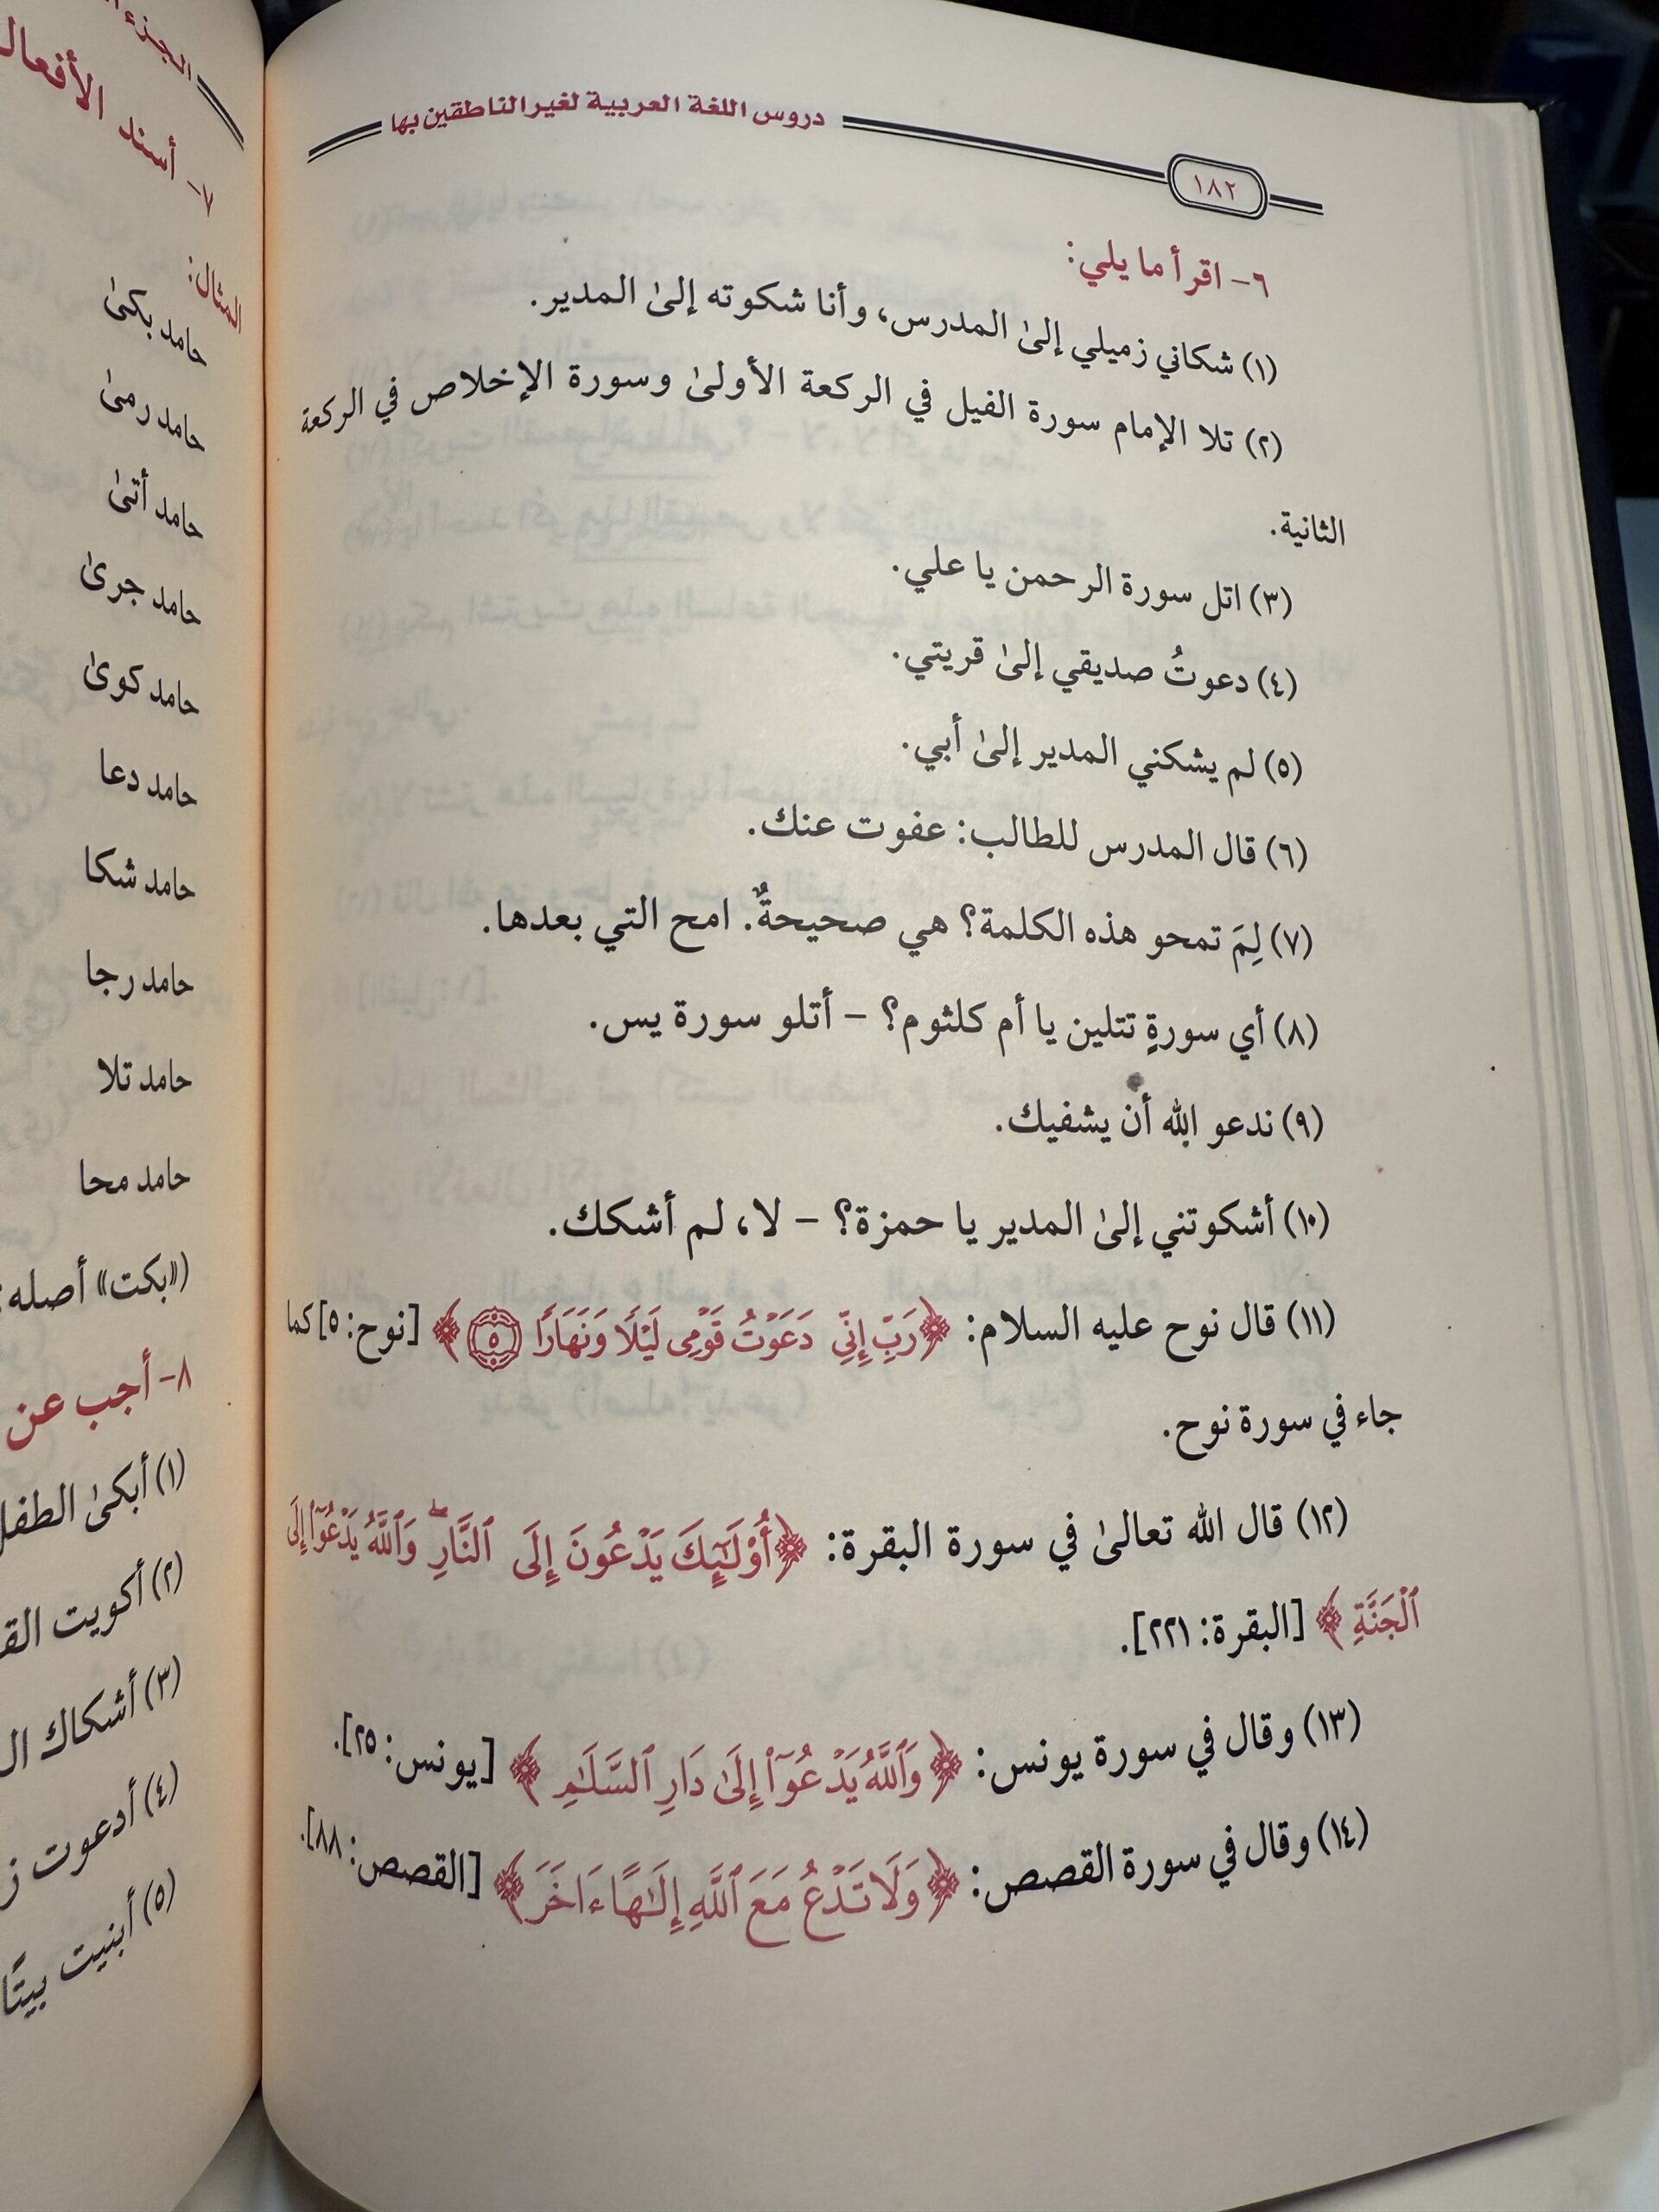 دروس اللغة العربية لغير الناطقين بها
١٨٢
٦- اقرأ ما يلي:
(١) شكاني زميلي إلىٰ المدرس، وأنا شكوته إلىٰ المدير.
(٢) تلا الإمام سورة الفيل في الركعة الأولىٰ وسورة الإخلاص في الركعة
الثانية.
(٣) اتل سورة الرحمن يا علي.
(٤) دعوتُ صديقي إلىٰ قريتي.
(٥) لم يشكني المدير إلىٰ أبي.
(٦) قال المدرس للطالب: عفوت عنك.
(٧) لِمَ تمحو هذه الكلمة؟ هي صحيحةٌ. امح التي بعدها.
(٨) أي سورةٍ تتلين يا أم كلثوم؟ – أتلو سورة يس.
(٩) ندعو الله أن يشفيك.
(١٠) أشكوتني إلىٰ المدير يا حمزة؟ – لا، لم أشكك.
(١١) قال نوح عليه السلام: ﴿رَبِّ إِنِّي دَعَوْتُ قَوْمِى لَيْلًا وَنَهَارًا ۝٥﴾ [نوح: ٥] كما
جاء في سورة نوح.
(١٢) قال الله تعالىٰ في سورة البقرة: ﴿أُوْلَـٰٓئِكَ يَدْعُونَ إِلَى ٱلنَّارِۖ وَٱللَّهُ يَدْعُوٓاْ إِلَى
ٱلْجَنَّةِ﴾ [البقرة: ٢٢١].
(١٣) وقال في سورة يونس: ﴿وَٱللَّهُ يَدْعُوٓاْ إِلَىٰ دَارِ ٱلسَّلَـٰمِ﴾ [يونس: ٢٥].
(١٤) وقال في سورة القصص: ﴿وَلَا تَدْعُ مَعَ ٱللَّهِ إِلَـٰهًا ءَاخَرَ﴾ [القصص: ٨٨].
الجزء
٧- أسند الأفعال
المثال:
حامد بكىٰ
حامد رمىٰ
حامد أتىٰ
حامد جرىٰ
حامد كوىٰ
حامد دعا
حامد شكا
حامد رجا
حامد تلا
حامد محا
(«بكت» أصله:
٨- أجب عن
(١) أبكىٰ الطفل
(٢) أكويت
(٣) أشكاك
(٤) أدعوت
(٥) أبنيت بيتًا